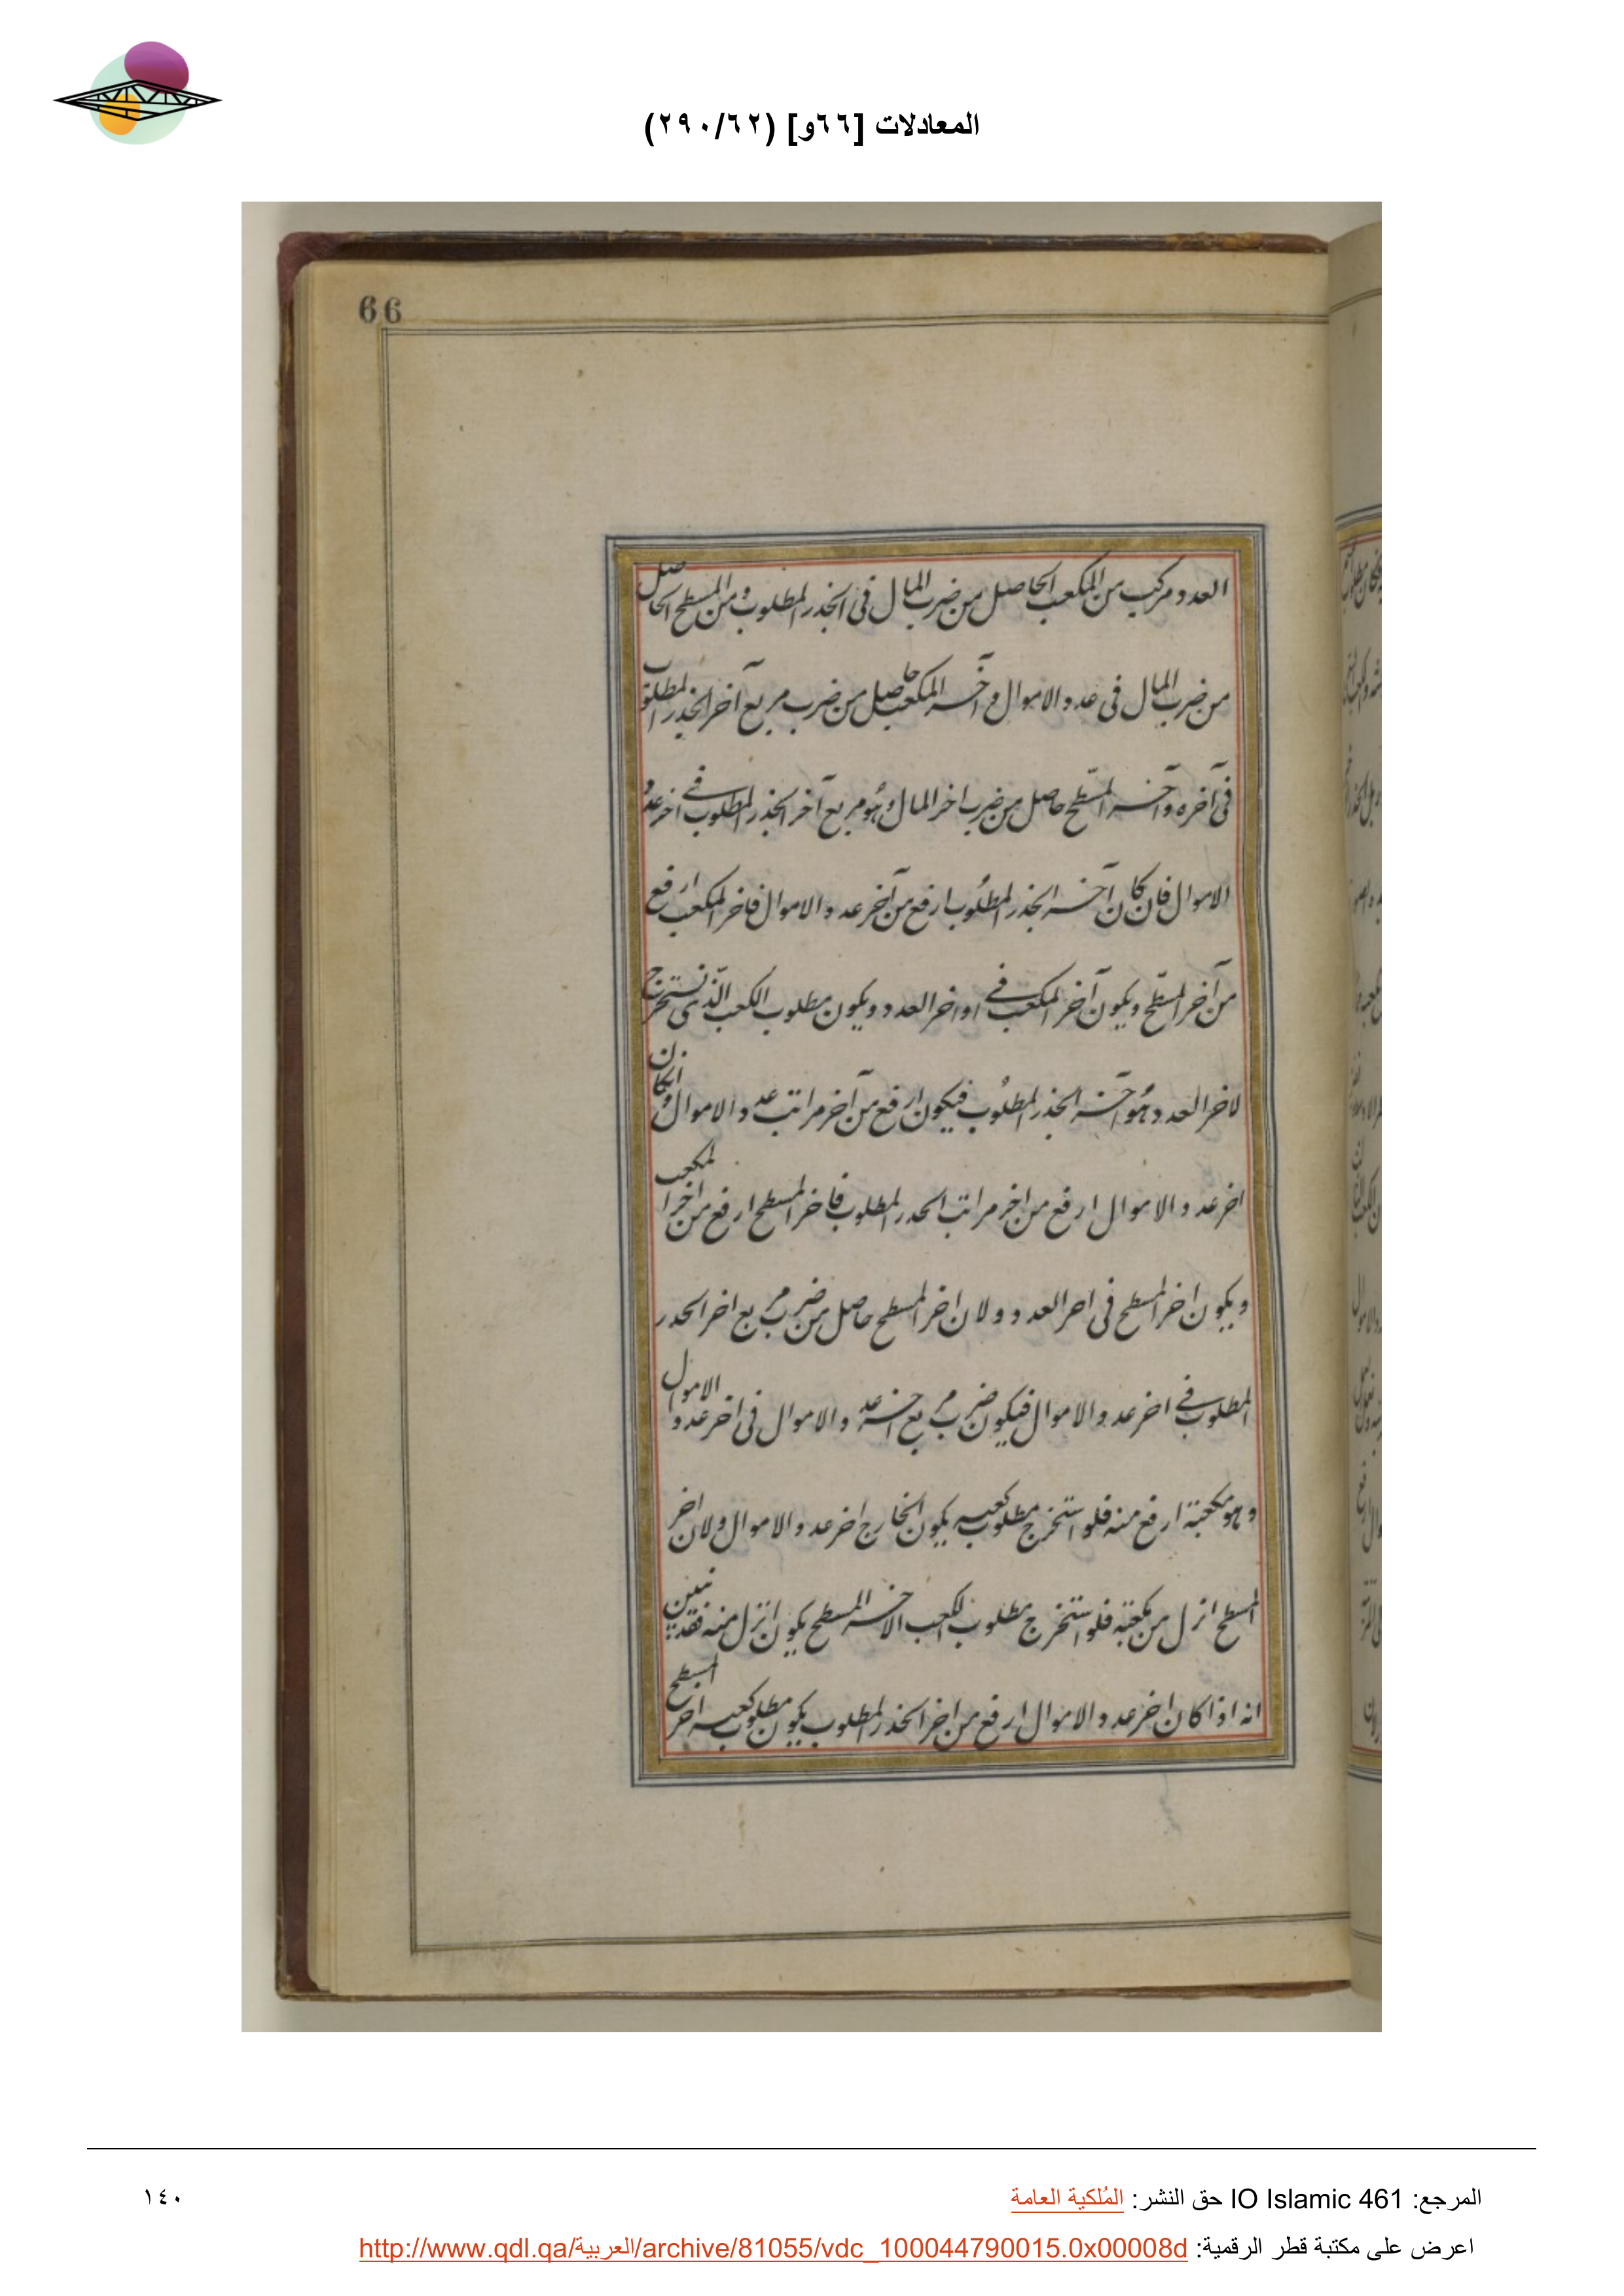 المعادلات [٦٦و] (٢٩٠/٦٢)
66
العدد مركب من المكعب الحاصل من ضرب المال فى الجذر المطلوب ومن المسطح الحاصل
من ضرب المال فى عدد الاموال وآخر المكعب حاصل من ضرب مربع آخر الجذر المطلوب
فى آخره وآخر المسطّح حاصل من ضرب اخر المال وهو مربع آخر الجذر المطلوب فى اخر عدد
الاموال فان كان آخر الجذر المطلوب ارفع من آخر عدد الاموال فاخر المكعب ارفع
من آخر المسطّح ويكون آخر المكعب فى اواخر العدد ويكون مطلوب الكعب الّذى نستخرج
لاخر العدد هو آخر الجذر المطلوب فيكون ارفع من آخر مراتب عدد الاموال وان كان
اخر عدد الاموال ارفع من اخر مراتب الحدر المطلوب فاخر المسطح ارفع من اخر المكعب
ويكون اخر المسطح فى احر العدد ولان اخر المسطح حاصل من ضرب مربع اخر الحدر
المطلوب فى اخر عدد الاموال فيكون ضرب مربع اخر عدد الاموال فى اخر عدد الاموال
وهو مكعبته ارفع منه فلو استخرج مطلوب كعبه يكون الخارج اخر عدد الاموال ولان اخر
المسطح انزل من مكعبته فلو استخرج مطلوب الكعب الاخر المسطح يكون انزل منه فقد تبين
انه اذا كان اخر عدد الاموال ارفع من اخر الجذر المطلوب يكون مطلوب كعبه احر المسطح
المرجع: IO Islamic 461 حق النشر: المُلكية العامة
١٤٠
اعرض على مكتبة قطر الرقمية: http://www.qdl.qa/العربية/archive/81055/vdc_100044790015.0x00008d